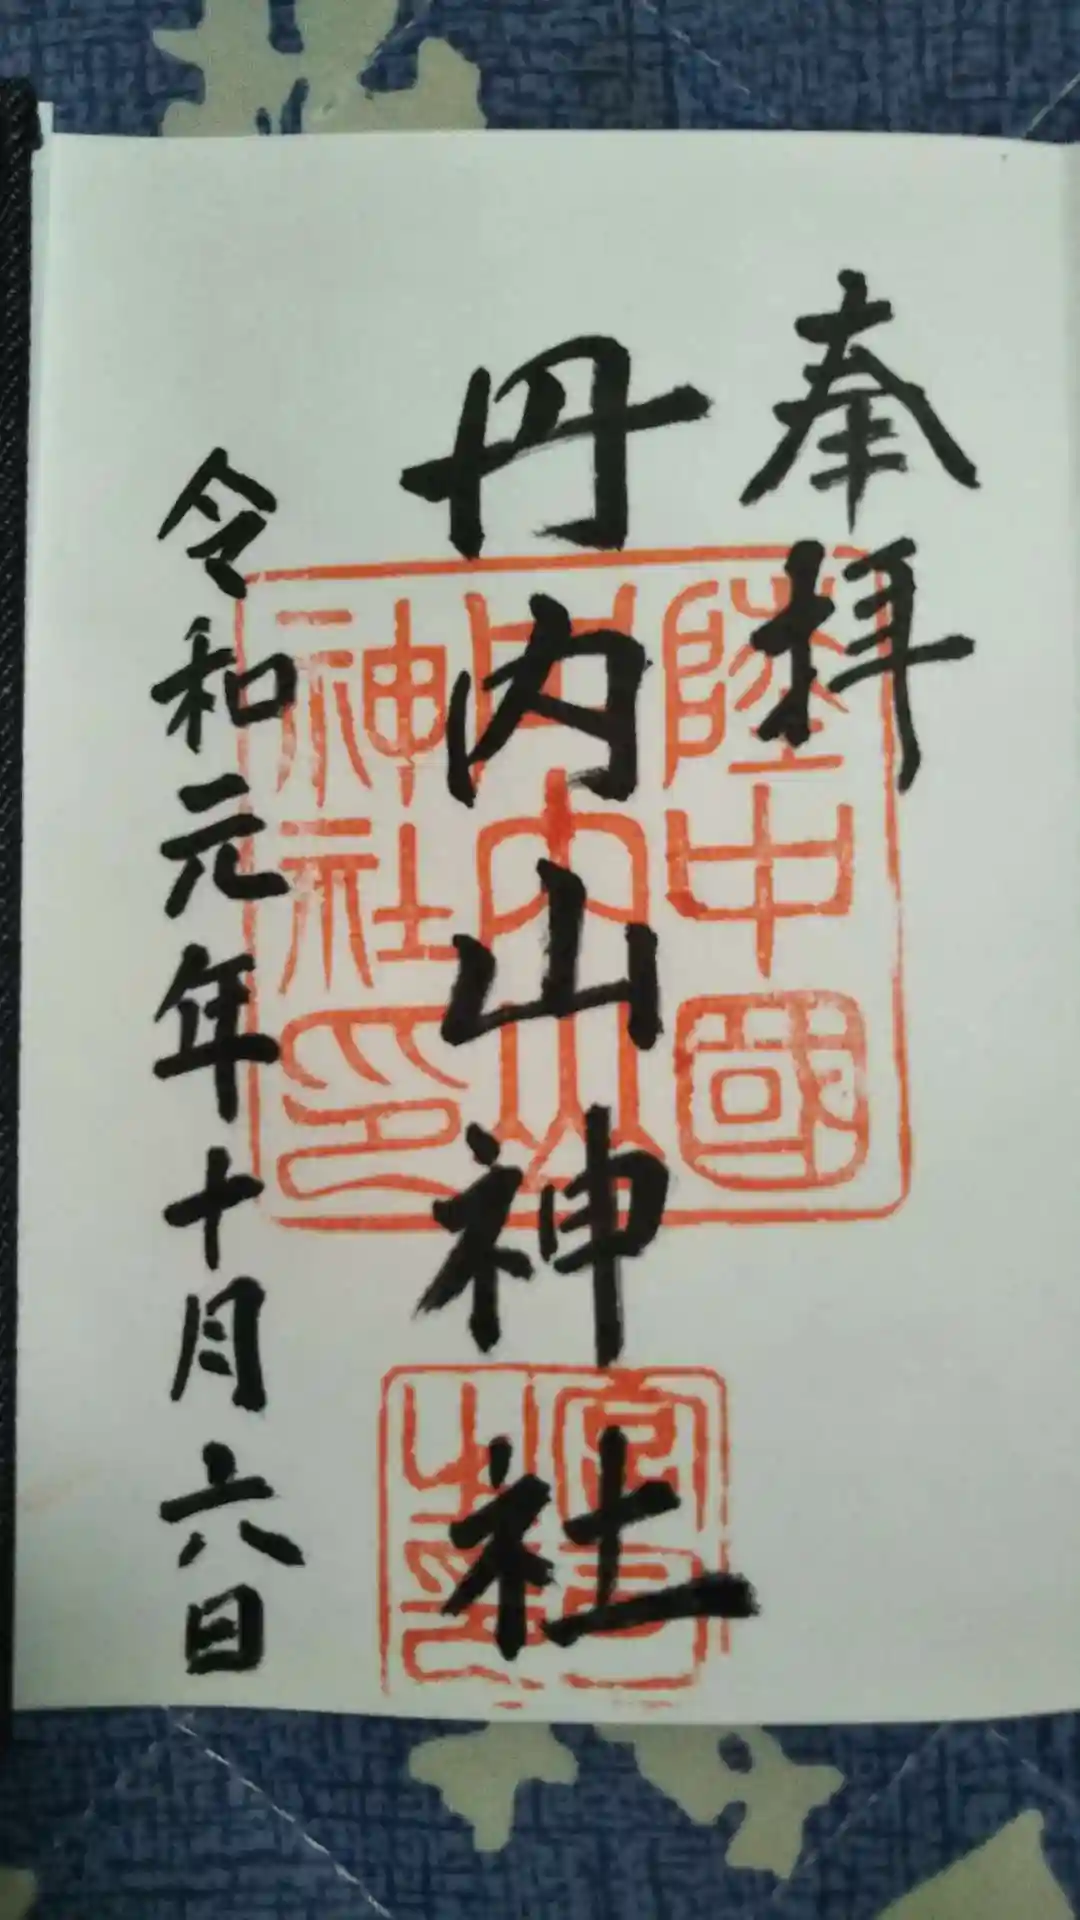 奉拝
陸中國
丹内山神社
丹内山
神社印
宮司
之印
令和元年十月六日